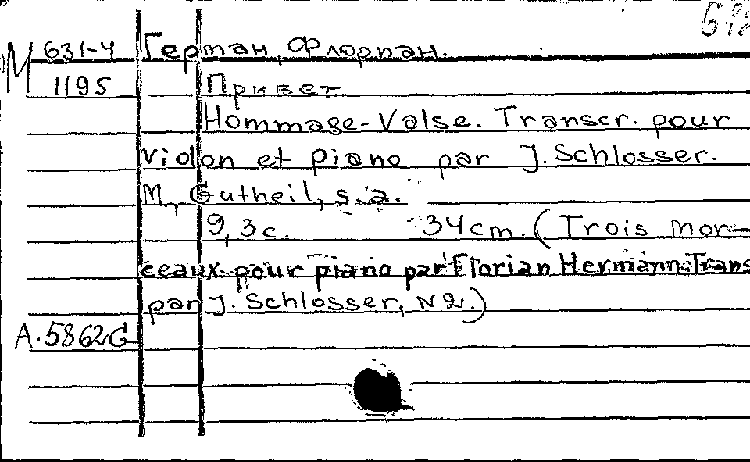 М 631-4 Герман, Флориан.
1195 Привет
Hommage-Valse. Transcr. pour
violon et piano par J. Schlosser.
M., Gutheil, s.a.
9, 3c. 34cm. (Trois mor-
ceaux pour piano par Florian Hermann. Trans
par J. Schlosser, N2.)
A.5862G